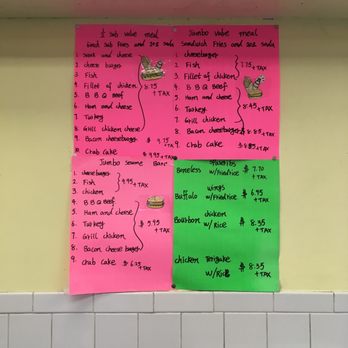 ½ sub value meal
1. Steak and cheese
2. cheese burger
3. Fish
4. Fillet of chicken
8.75 + TAX
5. B B Q Beef
6. Ham and cheese
7. Turkey
8. Grill chicken cheese
9. Bacon cheeseburger $ 9.75 + TAX
10. Crab Cake $ 9.95 + TAX
Jumbo value meal
Sandwich Fries and soda
1. Cheeseburger
2. Fish
7.75 + TAX
3. Fillet of chicken
4. B B Q Beef
5. Ham and cheese
8.45 + TAX
6. Turkey
7. Grill chicken
8. Bacon cheeseburger $ 8.85 + TAX
9. Crab Cake
+ TAX
Jumbo
1. cheeseburger
2. Fish
4.95 + TAX
3. chicken
4. B B Q Beef
5. Ham and cheese
6. Turkey
$ 5.95 + TAX
7. Grill chicken
8. Bacon cheese burger
9. Crab Cake $ 6.25 + TAX
Boneless w/Fried rice $ 7.70 + TAX
Buffalo wings w/Fried rice $ 6.95 + TAX
Bourbon chicken w/Rice $ 8.35 + TAX
chicken Teriyake w/Rice $ 8.35 + TAX